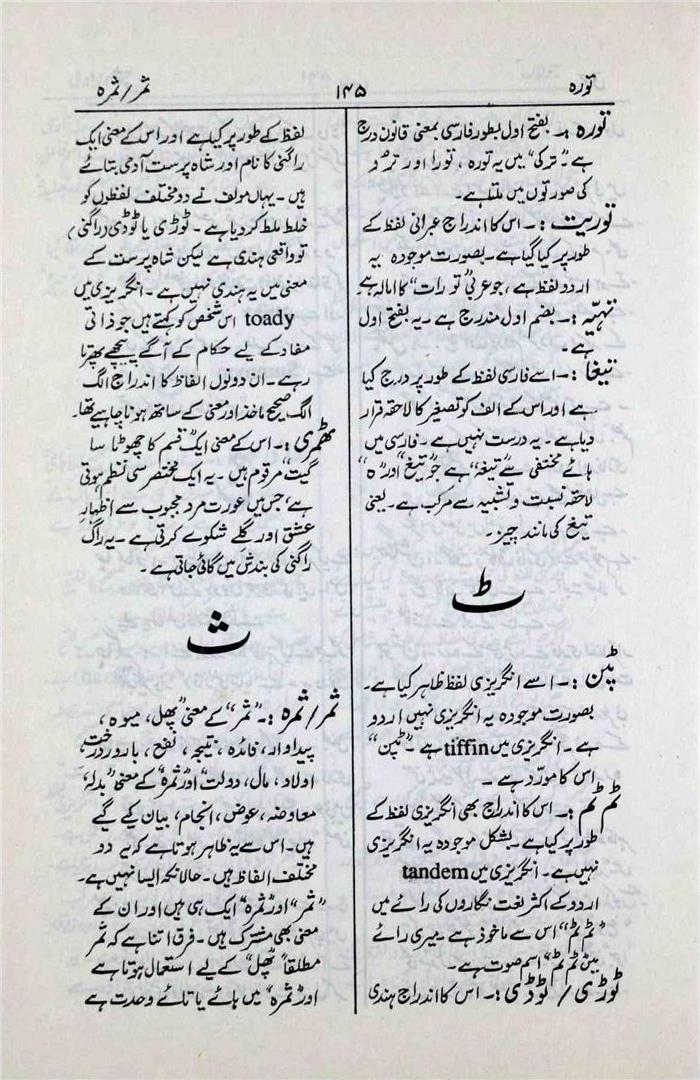 تورہ
۱۴۵
ثمر/ثمرہ
تورہ :۔ بفتح اول بطور فارسی بمعنی قانون درج
ہے۔ "ترکی" میں یہ تورہ ، تورا اور ترہ و
کی صورتوں میں ملتا ہے۔
توریت :۔ اس کا اندراج عبرانی لفظ کے
طور پر کیا گیا ہے۔ بصورت موجودہ یہ
اردو لفظ ہے ، جو عربی "تورات" کا امالہ ہے
تہیّہ :۔ بضم اول مندرج ہے ۔ یہ بفتح اول
ہے ۔
تیغا :۔ اسے فارسی لفظ کے طور پر درج کیا
ہے اور اس کے الف کو تصغیر کا لاحقہ قرار
دیا ہے ۔ یہ درست نہیں ہے ۔ فارسی میں
ہائے مختفی سے "تیغہ" ہے جو "تیغ" اور "ہ"
لاحقہ نسبت و تشبیہ سے مرکب ہے ۔ یعنی
تیغ کی مانند چیز ۔
ٹ
ٹپن :۔ اسے انگریزی لفظ ظاہر کیا ہے ۔
بصورت موجودہ یہ انگریزی نہیں اردو
ہے ۔ انگریزی میں tiffin ہے ۔ "ٹپن"
اس کا مورّد ہے ۔
ٹم ٹم :۔ اس کا اندراج بھی انگریزی لفظ کے
طور پر کیا ہے ۔ بشکل موجودہ یہ انگریزی
نہیں ہے ۔ انگریزی میں tandem
اردو کے اکثر لغت نگاروں کی رائے میں
"ٹم ٹم" اس سے ماخوذ ہے ۔ میری رائے
میں "ٹم ٹم" اسم صوت ہے ۔
ٹوڑی / ٹوڈی :۔ اس کا اندراج ہندی
لفظ کے طور پر کیا ہے اور اس کے معنی ایک
راگنی کا نام اور شاہ پرست آدمی بتائے
ہیں ۔ یہاں مولف نے دو مختلف لفظوں کو
خلط ملط کر دیا ہے ۔ ٹوڑی یا ٹوڈی (راگنی)
تو واقعی ہندی ہے لیکن شاہ پرست کے
معنی میں یہ ہندی نہیں ہے ۔ انگریزی میں
toady اس شخص کو کہتے ہیں جو ذاتی
مفاد کے لیے حکام کے آگے پیچھے پھرتا
رہے ۔ ان دونوں الفاظ کا اندراج الگ
الگ صحیح ماخذ اور معنی کے ساتھ ہونا چاہیے تھا۔
ٹھمری :۔ اس کے معنی ایک "قسم کا چھوٹا سا
گیت" مرقوم ہیں ۔ یہ ایک مختصر سی نظم ہوتی
ہے ، جس میں عورت مرد محبوب سے اظہار
عشق اور گلے شکوے کرتی ہے ۔ یہ راگ
راگنی کی بندش میں گائی جاتی ہے ۔
ث
ثمر / ثمرہ :۔ "ثمر" کے معنی "پھل ، میوہ ،
پیداوار ، فائدہ ، نتیجہ ، نفع ، بار ور درخت ،
اولاد ، مال ، دولت" اور "ثمرہ" کے معنی "بدلہ ،
معاوضہ ، عوض ، انجام" بیان کیے گیے
ہیں ۔ اس سے یہ ظاہر ہوتا ہے کہ یہ دو
مختلف الفاظ ہیں ۔ حالانکہ ایسا نہیں ہے ۔
"ثمر" اور "ثمرہ" ایک ہی ہیں اور ان کے
معنی بھی مشترک ہیں ۔ فرق اتنا ہے کہ ثمر
مطلقاً "پھل" کے لیے استعمال ہوتا ہے
اور "ثمرہ" میں ہائے یا تائے وحدت ہے